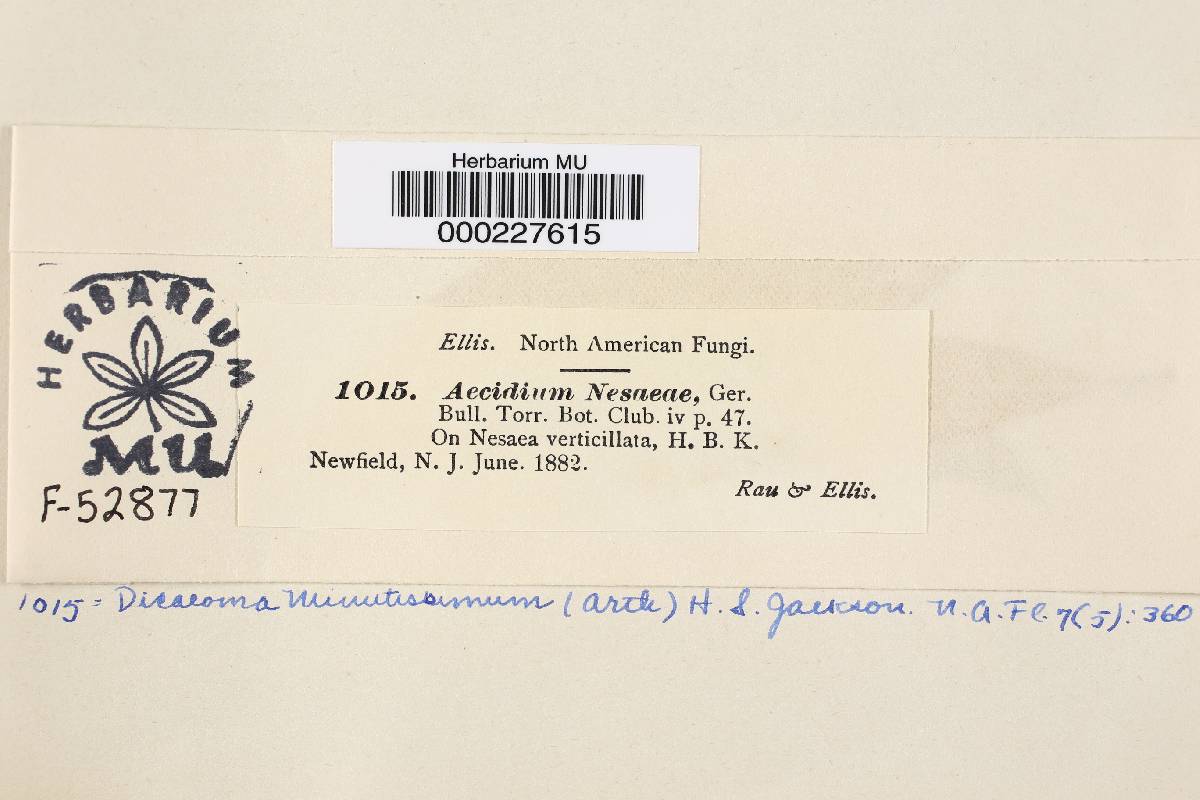 Herbarium MU
000227615
HERBARIUM
MU
F-52877
Ellis. North American Fungi.
1015. Aecidium Nesaeae, Ger.
Bull. Torr. Bot. Club. iv p. 47.
On Nesaea verticillata, H. B. K.
Newfield, N. J. June. 1882.
Rau & Ellis.
1015 = Dicaeoma Minutissimum (Arth) H. S. Jackson. N.A.Fl. 7(5): 360